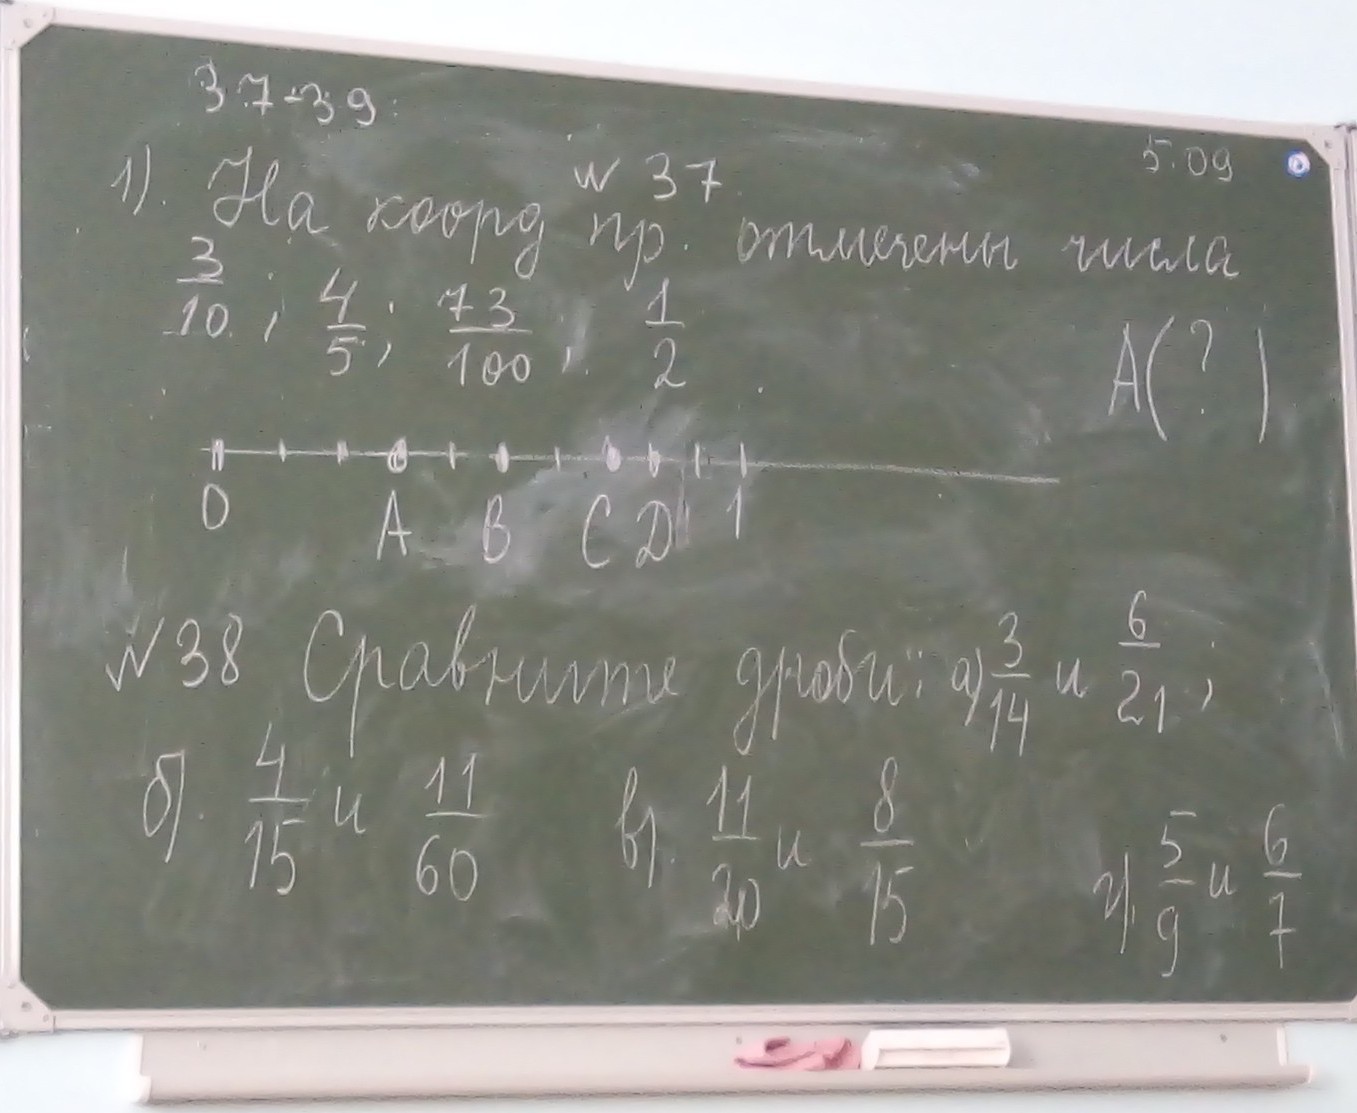 37-39.
5.09
№ 37
1). На коорд пр. отмечены числа
3/10; 4/5; 73/100; 1/2
А(?)
0 А В С D 1
№38 Сравните дроби: а) 3/14 и 6/21;
б). 4/15 и 11/60 в). 11/20 и 8/15 г). 5/9 и 6/7